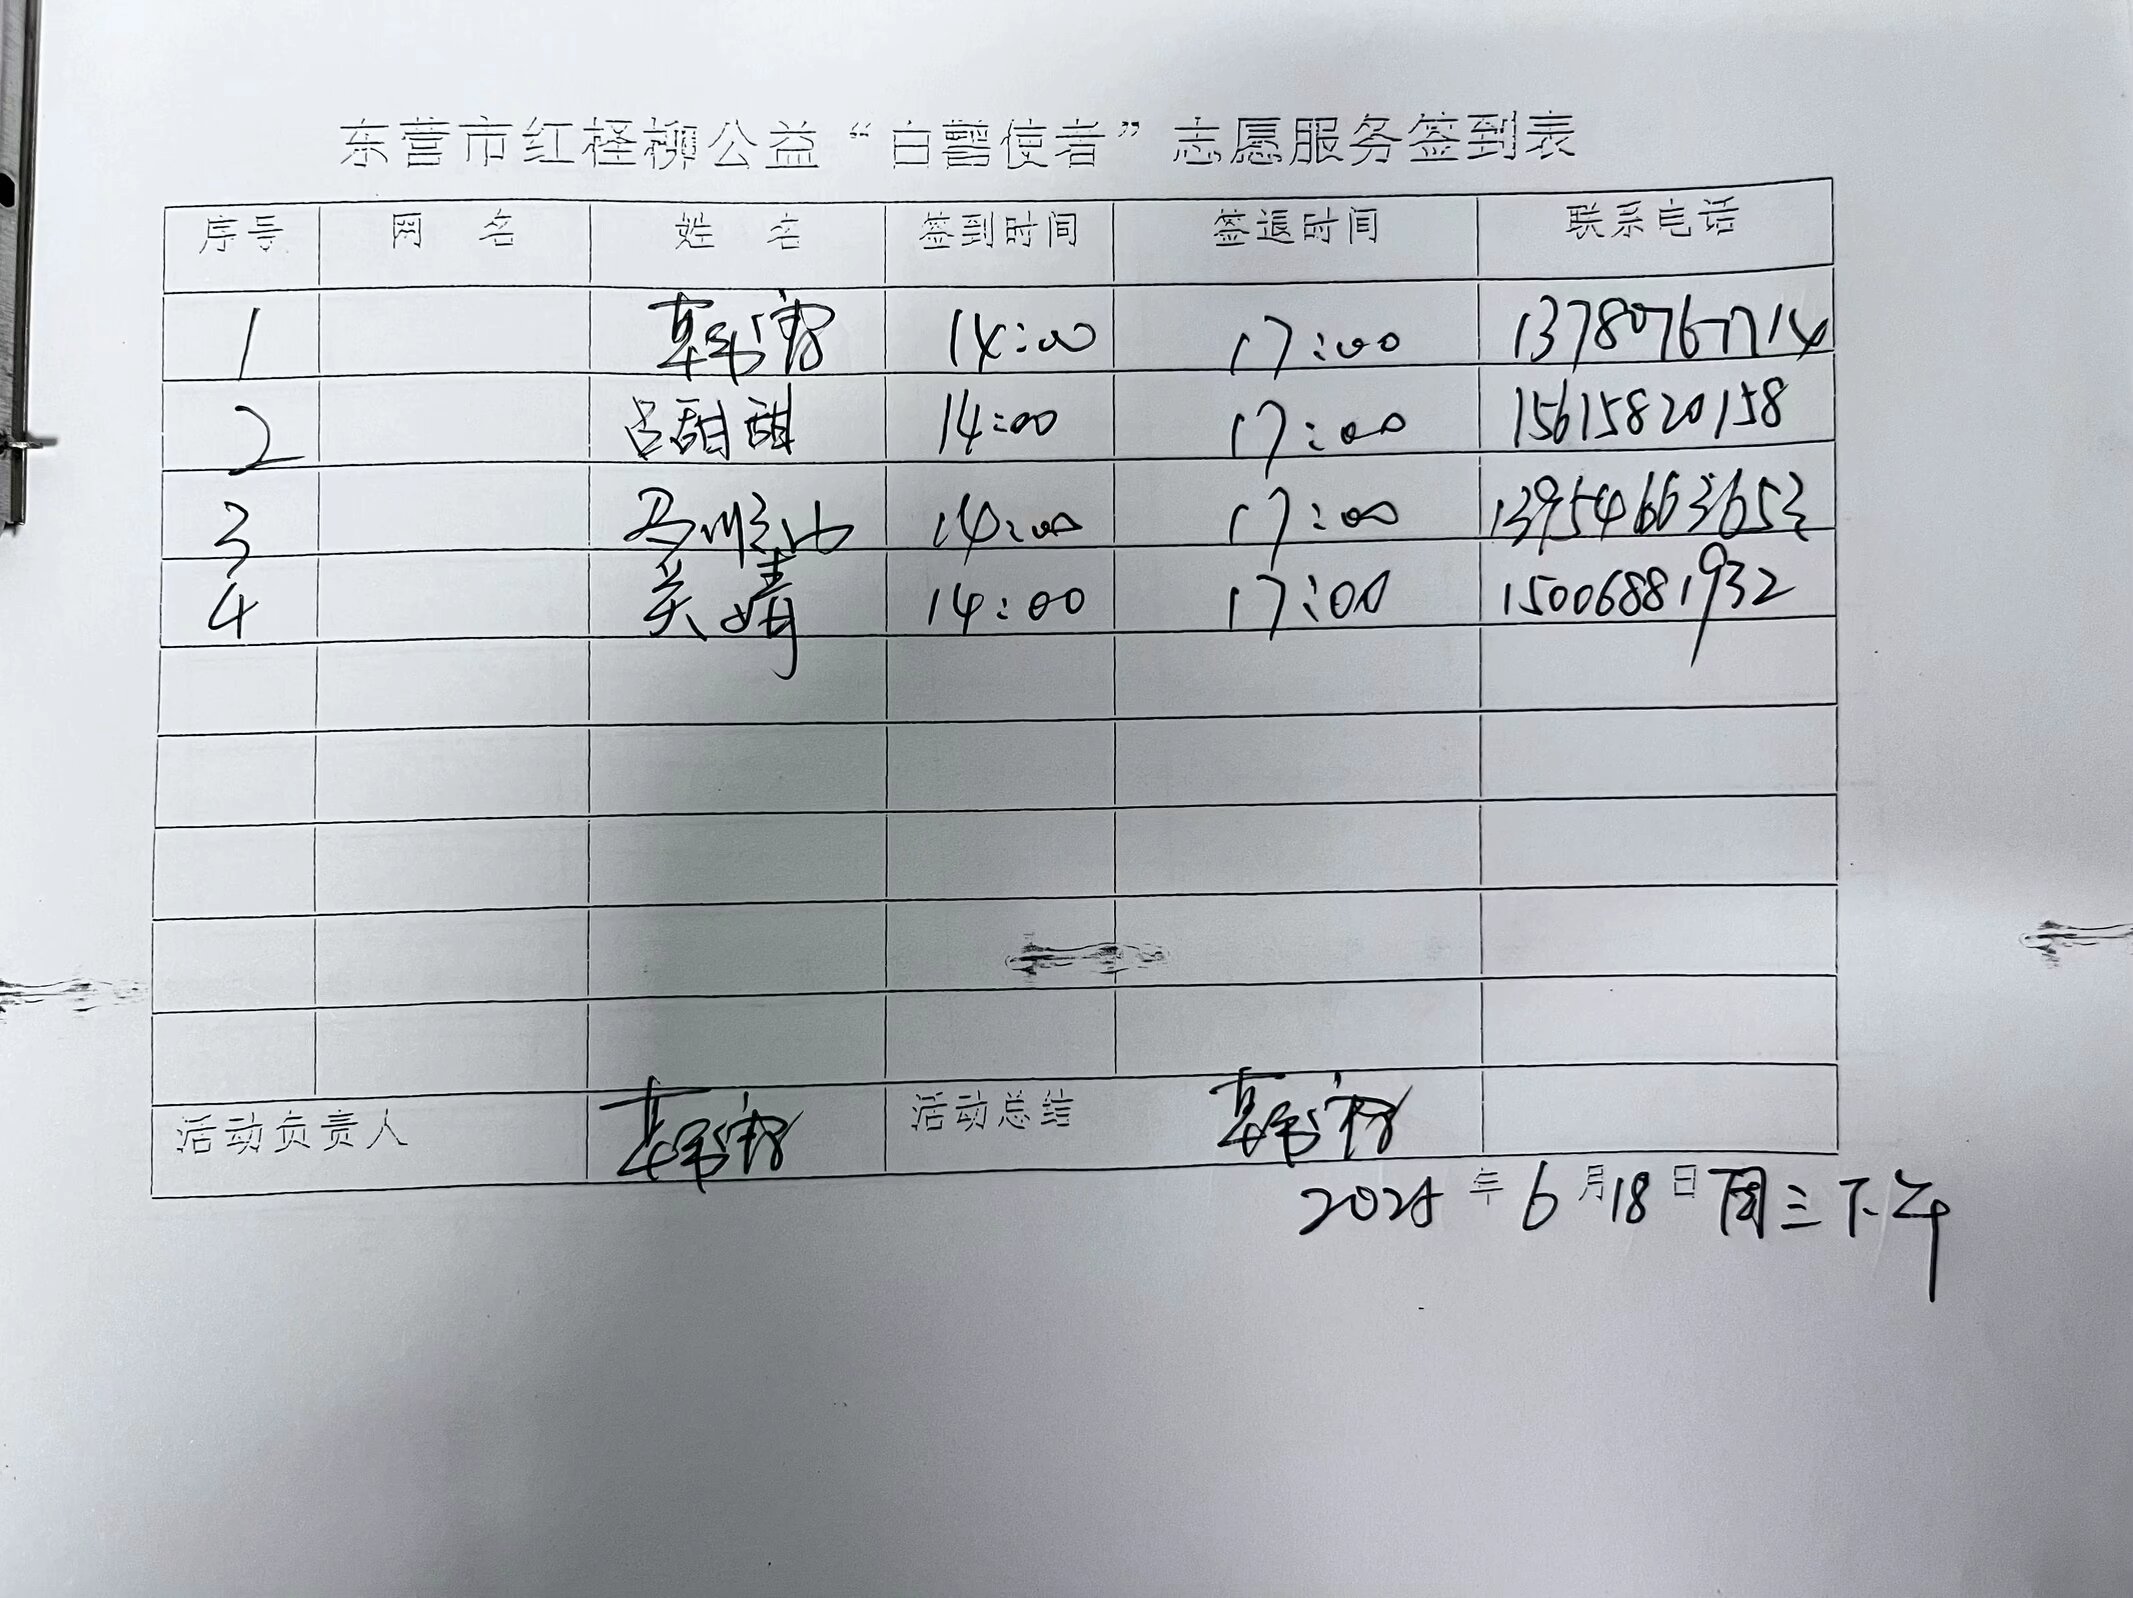 东营市红柽柳公益“白鹭使者”志愿服务签到表
序号 网名 姓名 签到时间 签退时间 联系电话
1 14:00 17:00 13780767714
2 吕甜甜 14:00 17:00 15615820158
3 14:00 17:00 13954663653
4 关婧 14:00 17:00 15006881932
活动负责人 活动总结
2025年6月18日周三下午